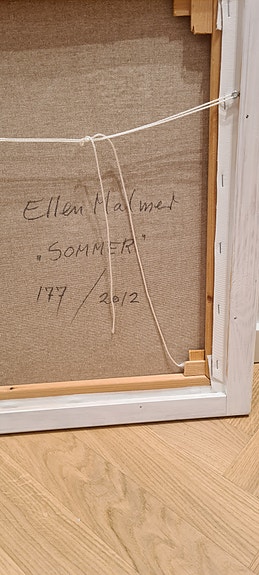 Ellen Malmer
„SOMMER"
177/2012